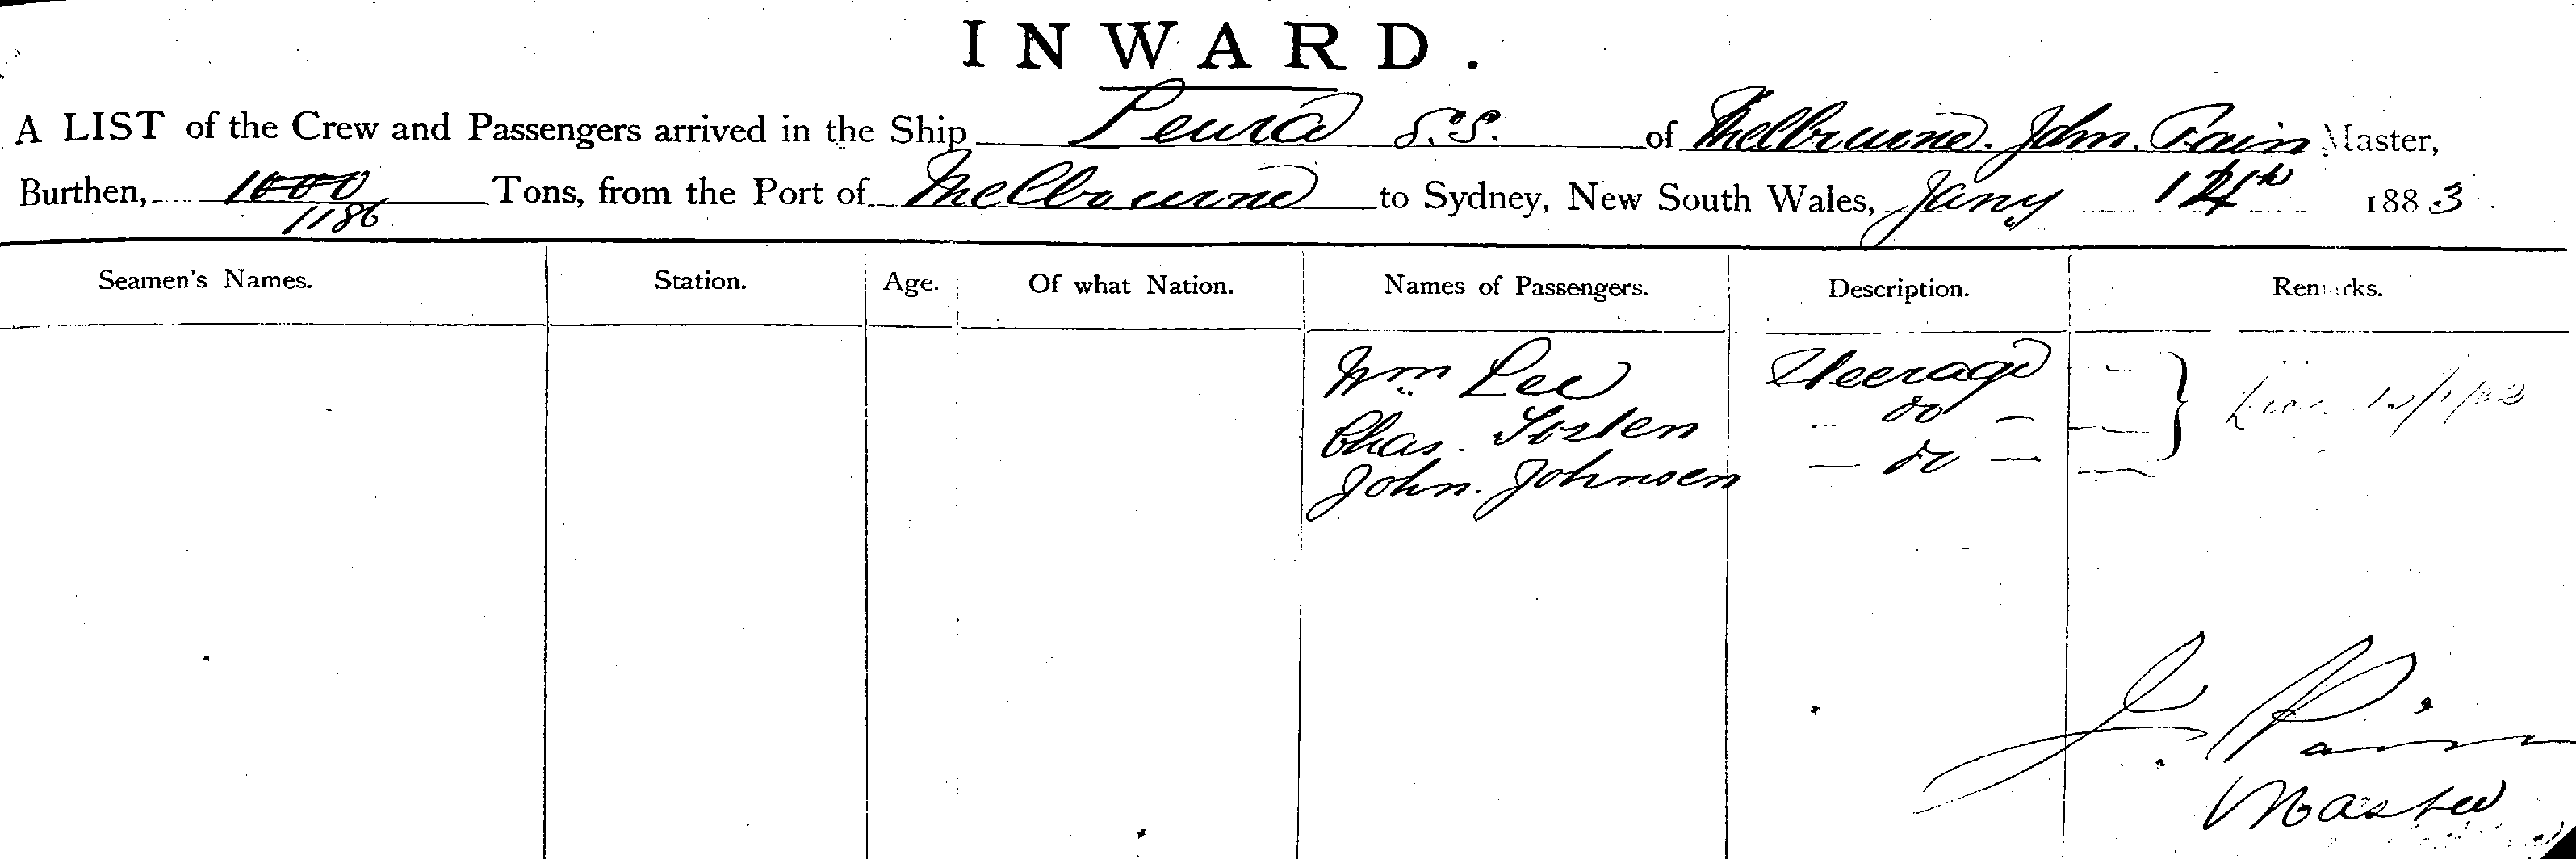 INWARD.
A LIST of the Crew and Passengers arrived in the Ship Leura S.S. of Melbourne. John. Pain Master,
Burthen, 1000 Tons, from the Port of Melbourne to Sydney, New South Wales, Jany 188 3.
1186
Seamen's Names. Station. Age. Of what Nation. Names of Passengers. Description. Remarks.
Wm Lee Steerage
Chas. - do -
John. Johnsen - do -
J. Pain
Master